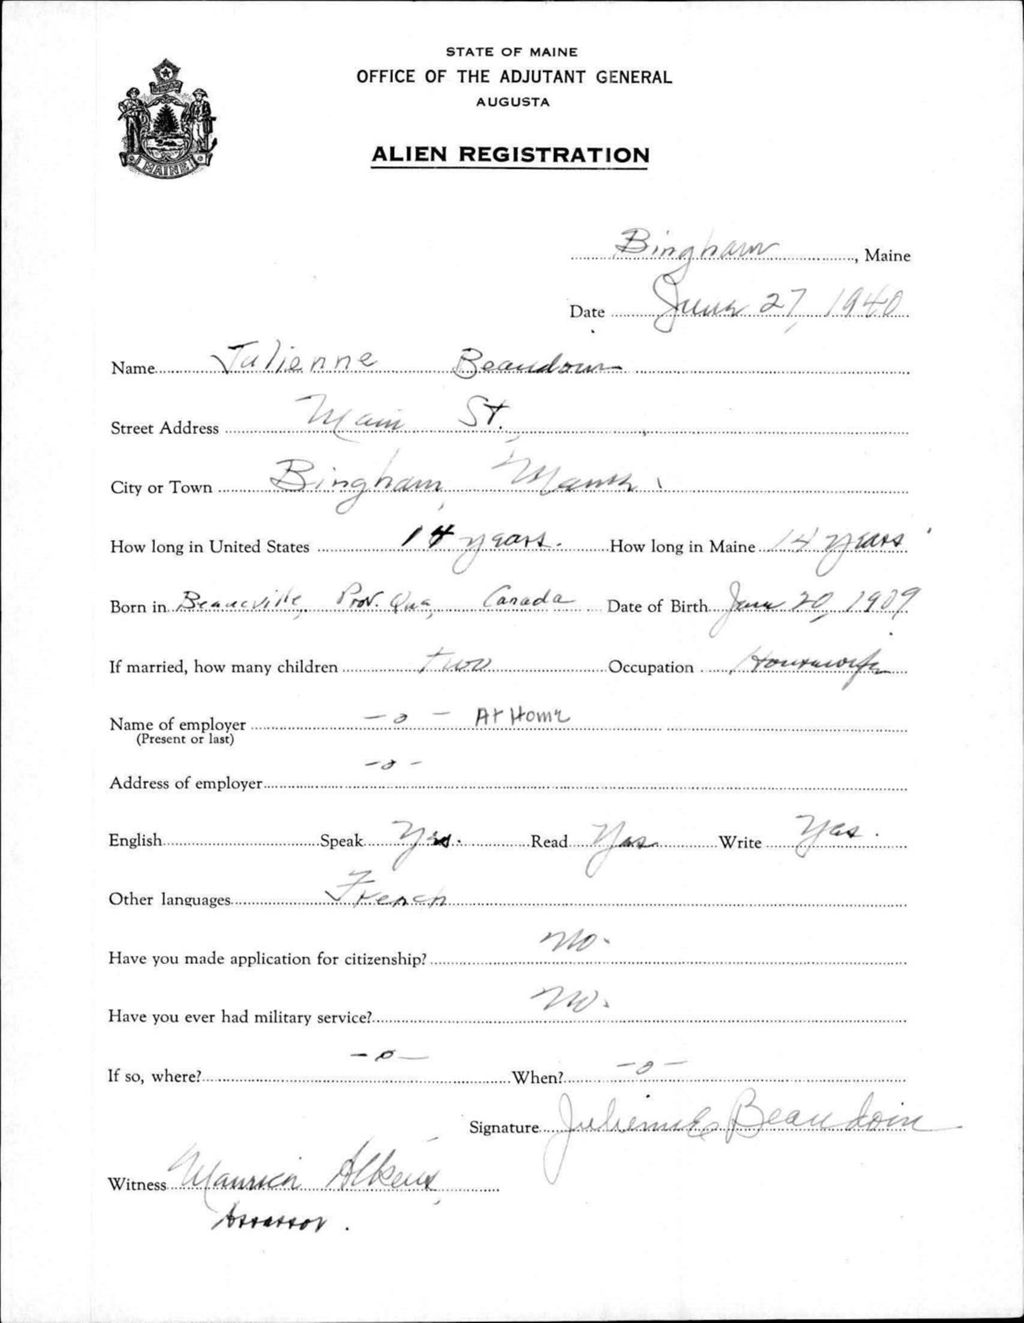 STATE OF MAINE
OFFICE OF THE ADJUTANT GENERAL
AUGUSTA
MAINE
ALIEN REGISTRATION
Bingham, Maine
Date June 27, 1940
Name Julienne Beaudoin
Street Address Main St.
City or Town Bingham, Maine.
How long in United States 14 years. How long in Maine 14 years
Born in Beauceville, Prov. Que, Canada Date of Birth 20, 1909
If married, how many children two Occupation Housewife
Name of employer — o — At Home
(Present or last)
Address of employer — o —
English Speak Yes. Read Yes Write Yes.
Other languages French
Have you made application for citizenship? No.
Have you ever had military service? No.
If so, where? — o — When? — o —
Signature Julienne Beaudoin
Witness Maurice
Assessor.